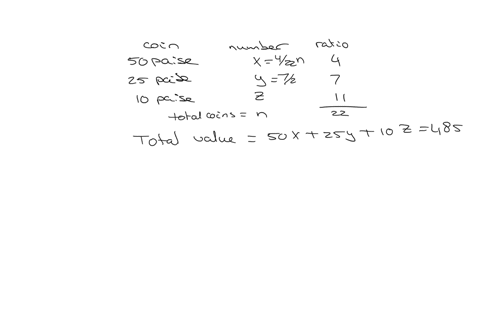 coin number ratio
50 paise x = 4/22 n 4
25 paise y = 7/2 7
10 paise z 11
total coins = n 22
Total value = 50x + 25y + 10z = 485